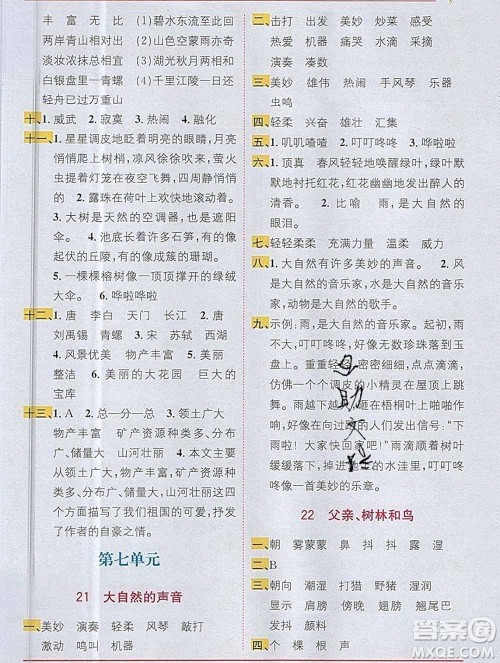 丰 富 无 比 (1)碧水东流至此回
两岸青山相对出 (2)空蒙 亦奇
淡妆浓抹总相宜 (3)湖光秋月
白银盘里一青螺 (4)千里江陵一日还
轻舟已过万重山
十、1. 威武 2. 寂寞 3. 闹 4. 融化
十一、1. 星星调皮地眨着明亮的眼睛,月亮
悄悄爬上了树梢,凉风徐徐地吹来,萤火
虫提着灯笼在夜空飞舞,四周静悄悄
的。 2. 露珠在荷叶上欢快地滚动着。
3. 大树是天然的空调器,也是天然的遮
阳伞。 4. 池底有许多石笋,有的像起
伏的丘陵,有的像成簇的珊瑚。
5. 一棵棵榕树像一顶顶撑开的绿绒
大伞。 6. 哗啦啦
十二、1. 唐 李白 天门 长江 2. 唐
刘禹锡 青螺 3. 宋 苏轼 西湖
4. 风景优美 物产丰富 5. 美丽
整洁 6. 美丽的大花园 巨大的
宝库
十三、1. A 2. 总—分—总 3. 领土广大
物产丰富 矿产资源种类多、储
量大 山河壮丽 4. 本文主要
从领土广大,物产丰富,矿产资源
种类多、储量大,山河壮丽这四个
方面描写了我们祖国的可爱,抒发
了作者的自豪之情。
第七单元
21 大自然的声音
一、美妙 演奏 轻柔 风琴 敲打
激动 鸣叫 机器
二、击打 出发 美妙 炒菜 感受
热爱 机器 痛哭 冰激凌 威武
演奏 凑数
三、美妙 雄伟 热闹 手风琴 乐器
虫鸣
四、轻柔 兴奋 雄壮 汇集
五、叽叽喳喳 叮叮咚咚 哗啦啦
六、1. 顶真 春风轻轻地唤醒绿叶,绿叶默
默地衬托红花,红花幽幽地散发出醉人的
清香。 2. 比喻 雨,是大自然的
眼泪。
七、轻轻柔柔 充满力量 温柔 威力
八、1. 大自然有许多美妙的声音。 2. 风
是大自然的音乐家,水是大自然的音乐
家,动物是大自然的歌手。
九、示例:雨,是大自然的音乐家。起初,雨
不大,叮叮咚咚,好像无数珍珠落到玉
盘上。重重轻轻,密密细细,点点滴滴,
仿佛是一个个调皮的小精灵在屋里舞
蹈。雨越下越大,落在梧桐叶上啪啪作
响,好像在向过路的人们发出信号:“下
雨啦!大家快回家吧!”雨滴滴到树叶上
缓缓落下,掉进池边的水洼里,叮叮咚
咚,好像一首美妙的乐章。
22 父亲、树林和鸟
一、朝 雾蒙蒙 鼻 抖 抖 露
二、B
三、朝向 潮湿 打猎 野猪 湿润
显示 肩膀 翅膀 翅膀 尾巴
发抖 颜料
四、个 棵 根 声
MXQE.COM